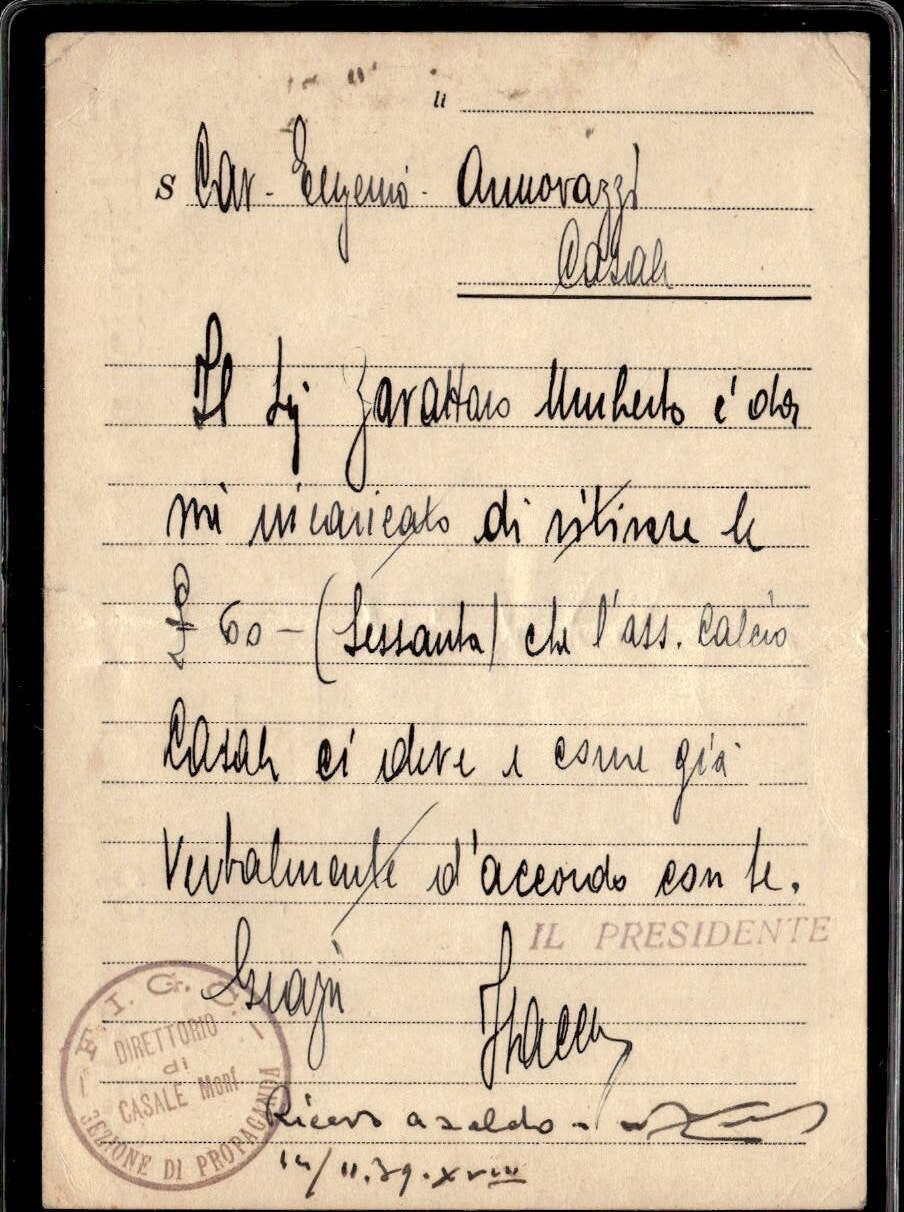 li
S Cav - Eugenio - Annovazzi
Casale
Il Sig Zavattaro Umberto è da
me incaricato di ritirare le
£ 60 - (Sessanta) che l'ass. Calcio
Casale ci deve e come già
Verbalmente d'accordo con te.
IL PRESIDENTE
Grazie
F. I. G. C.
DIRETTORIO
di
CASALE Monf.
SEZIONE DI PROPAGANDA
Ricevo a saldo -
/11.39.XVIII